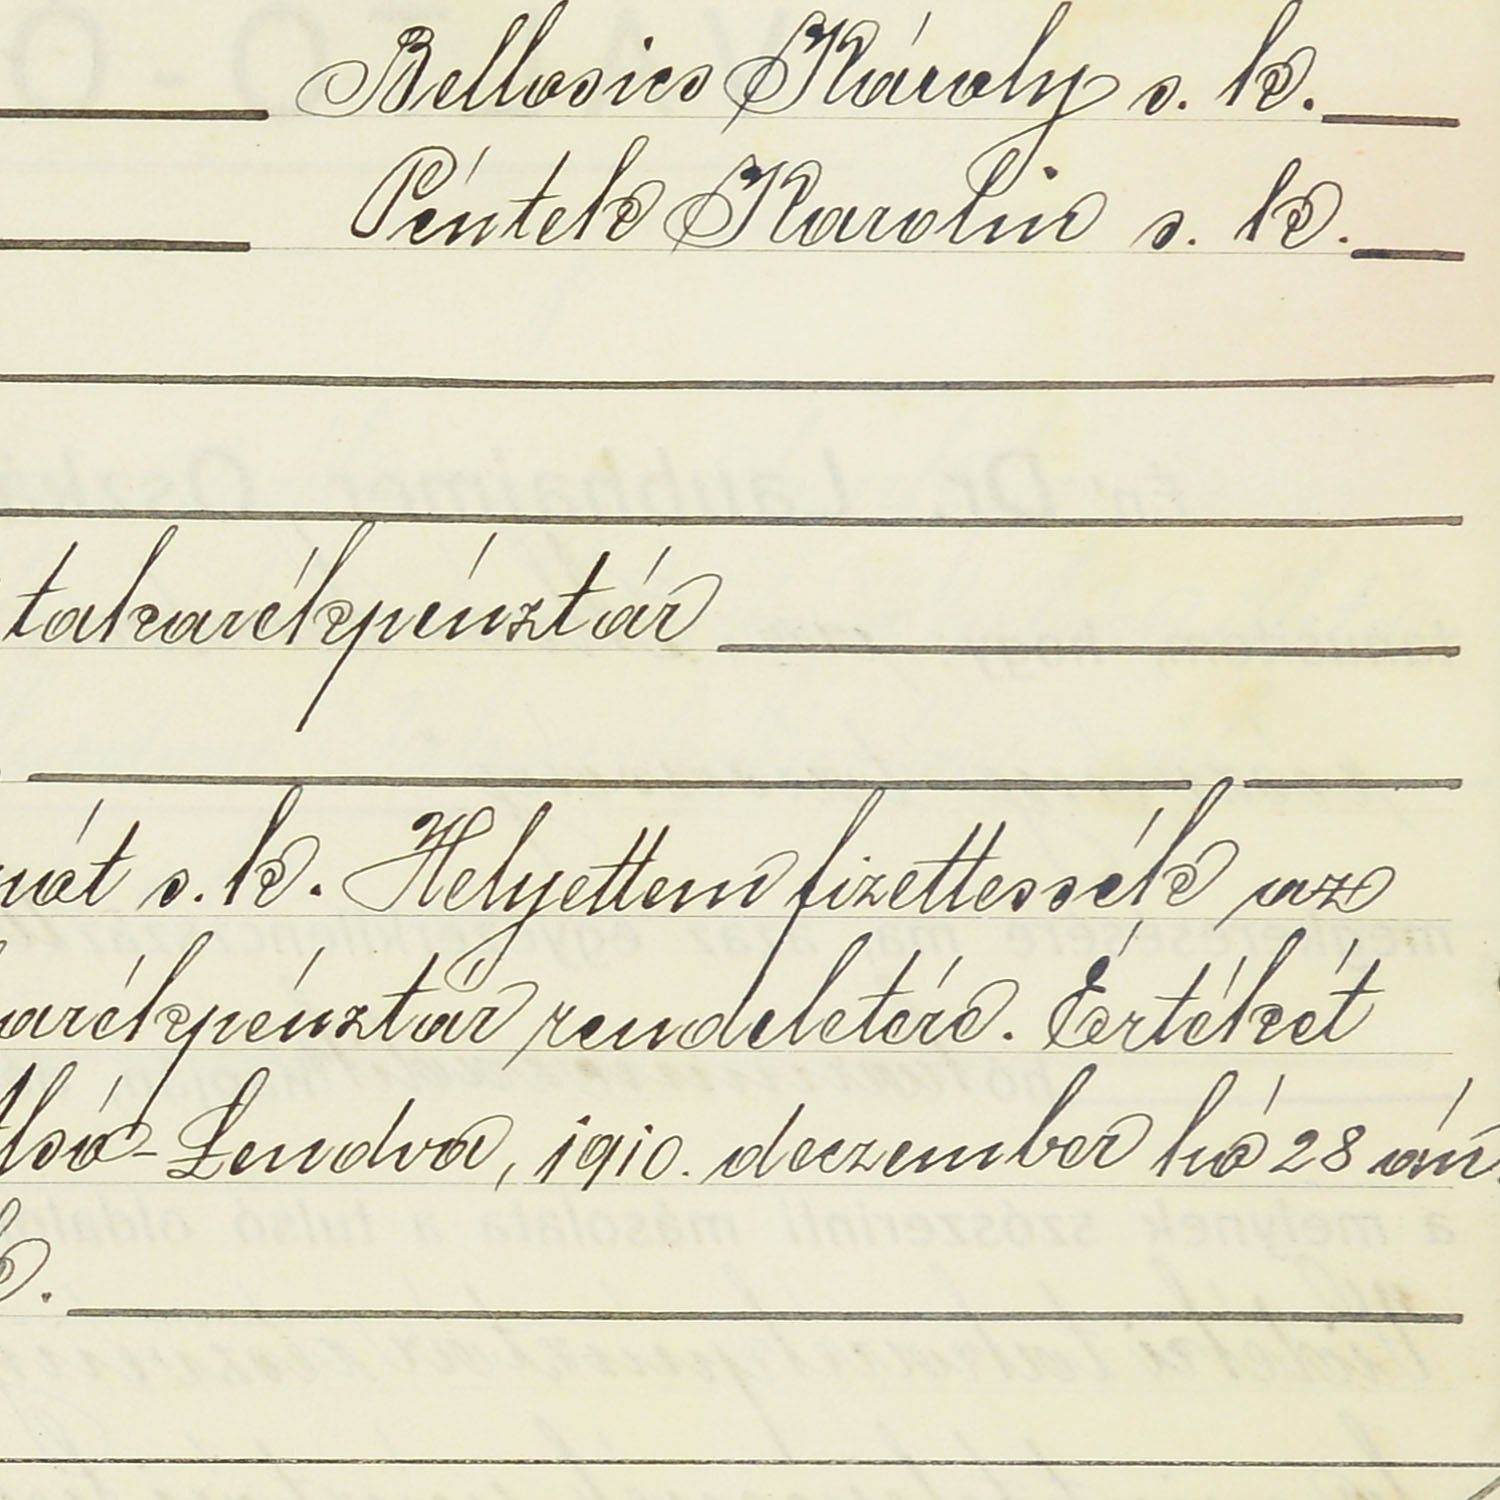 Bellosics Károly s. k.
Péntek Karolin s. k.
takarékpénztár
nát s. k. Helyettem fizettessék az
arékpénztár rendeletére. Értékét
Alsó-Lendva, 1910. deczember hó 28 án.
k.